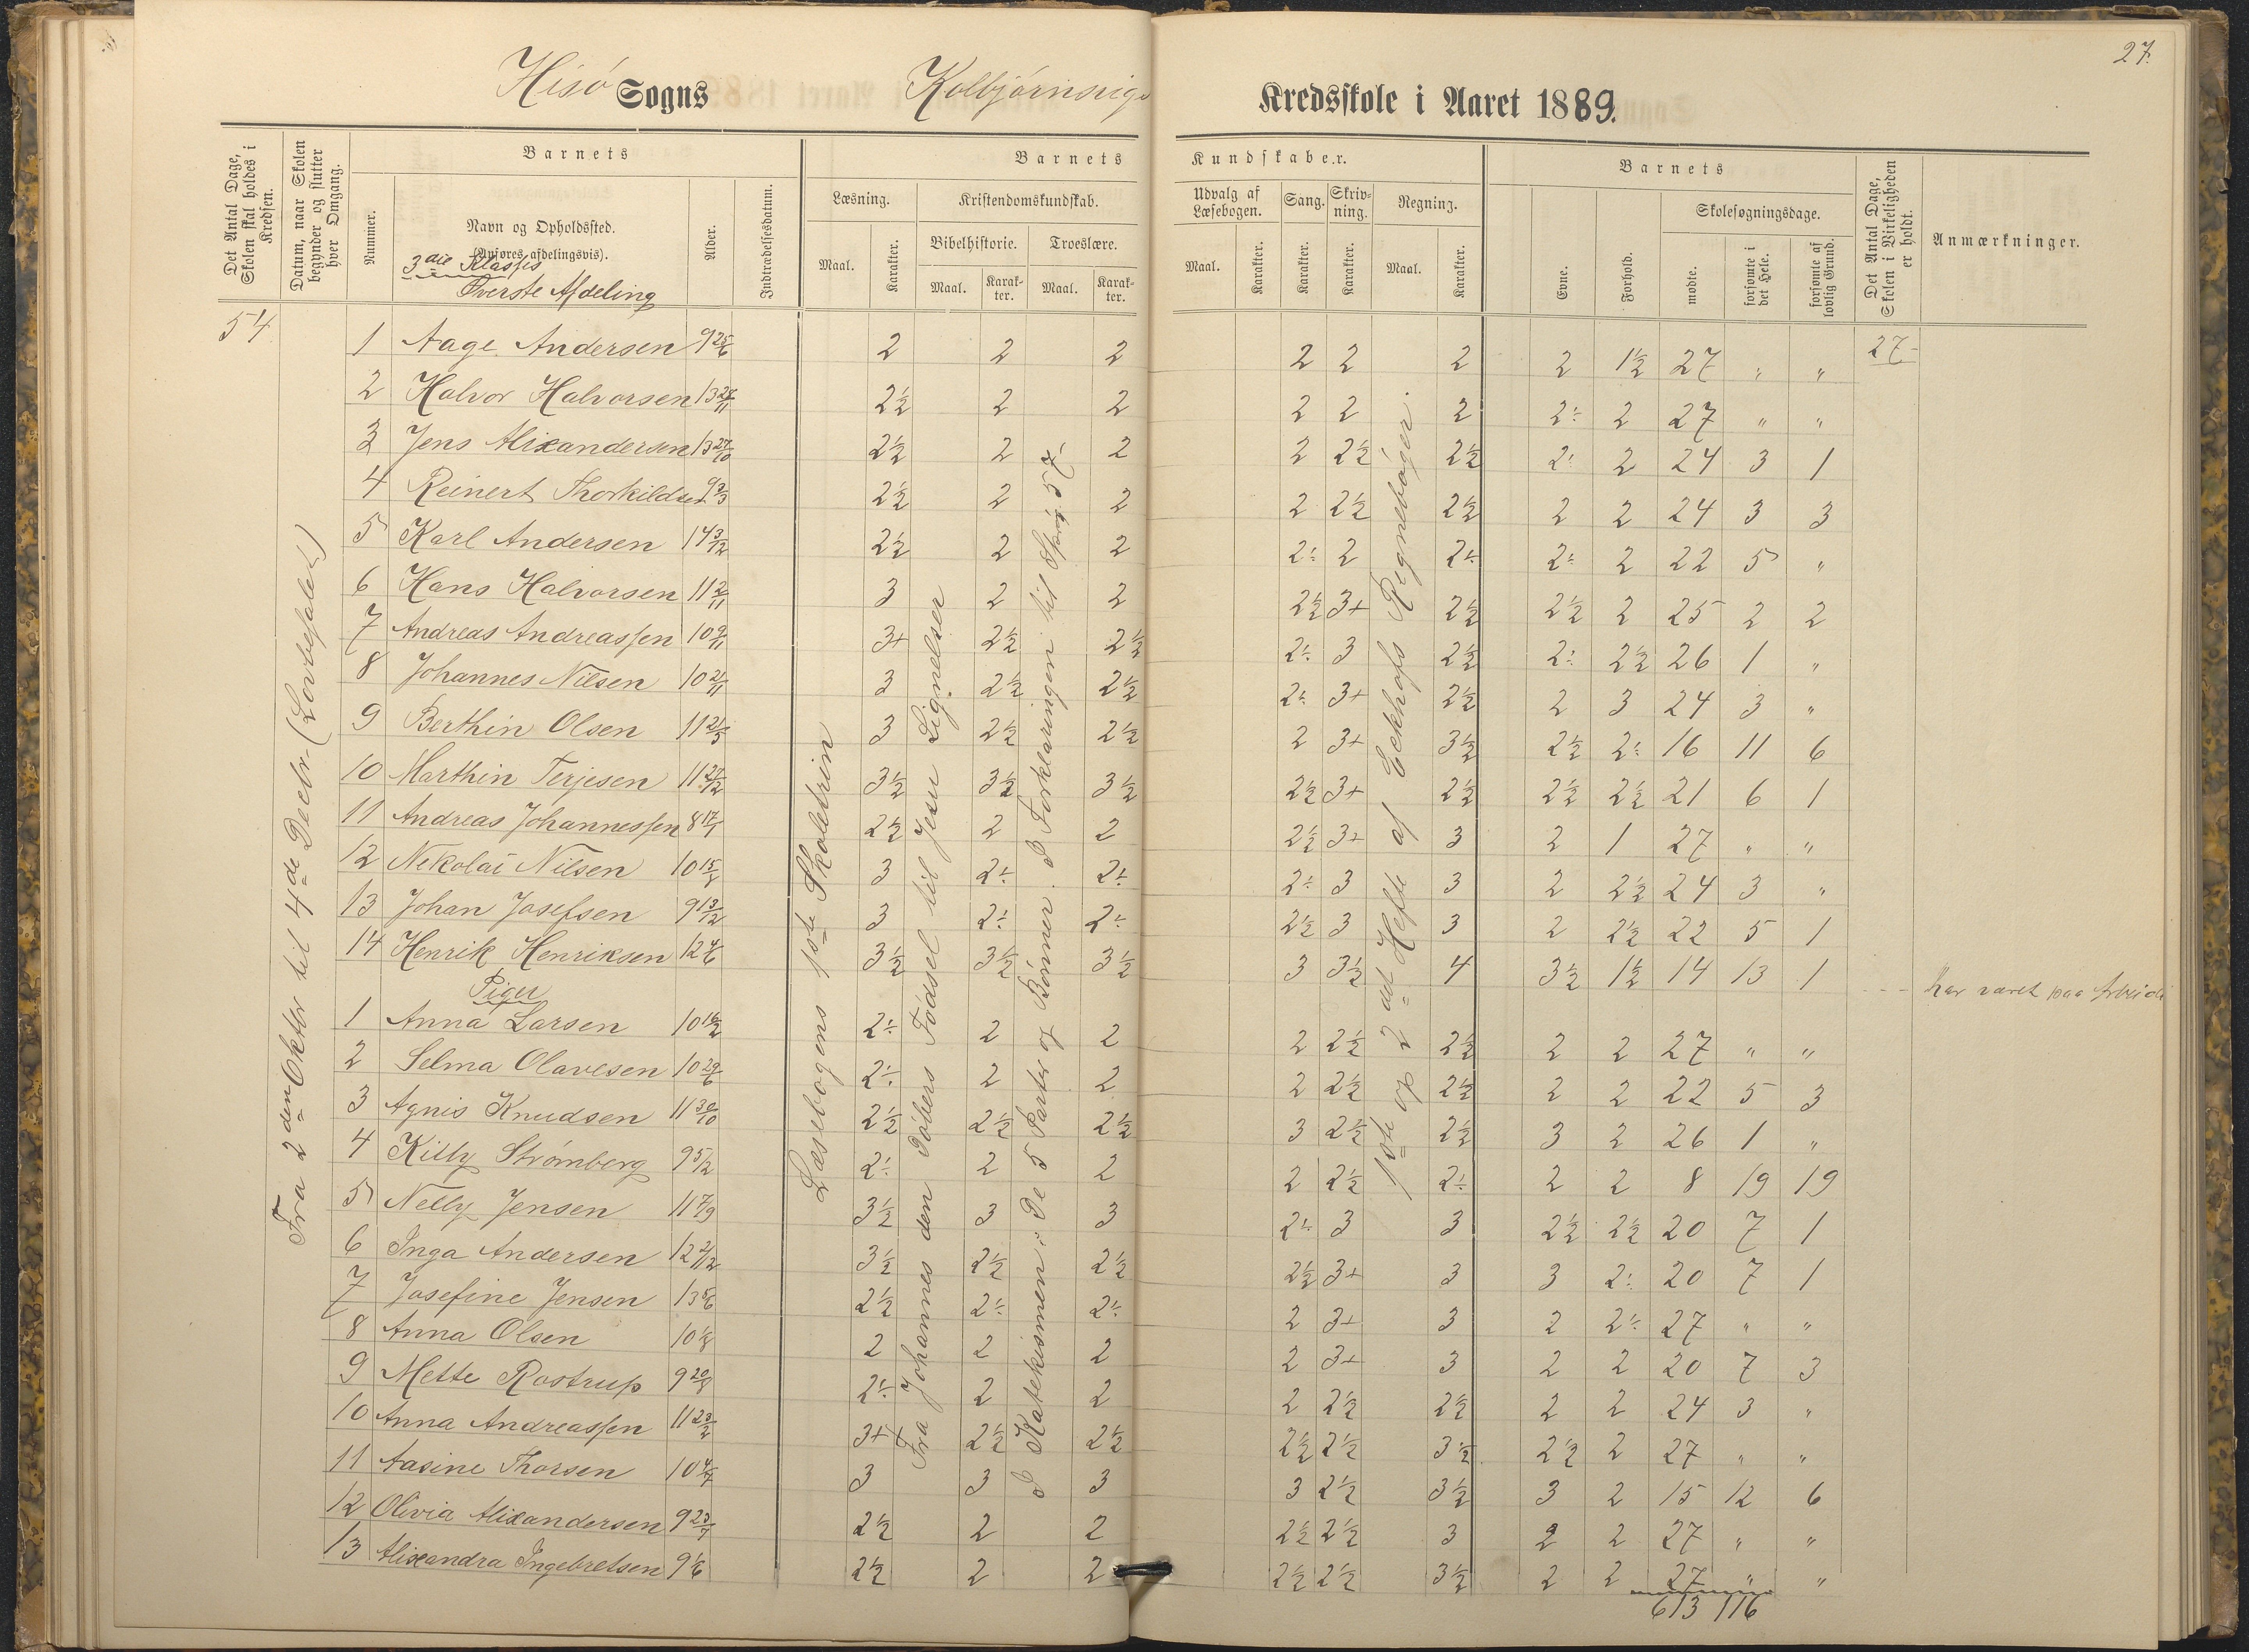 27.
Hisö Sogns Kolbjörnsvigs Kredsskole i Aaret 1889.
Det Antal Dage, Skolen skal holdes i Kredsen.
Datum, naar Skolen begynder og slutter hver Omgang.
Barnets
Nummer.
Navn og Opholdssted.
(Anføres afdelingsvis).
3die Klasses
Øverste Afdeling
Alder.
Indtrædelsesdatum.
Barnets Kundskaber.
Læsning. Kristendomskundskab. Udvalg af Læsebogen. Sang. Skrivning. Regning.
Bibelhistorie. Troeslære.
Maal. Karakter. Maal. Karakter. Maal. Karakter. Maal. Karakter. Karakter. Karakter. Maal. Karakter.
Barnets
Evne. Forhold. Skolesøgningsdage.
mødte. forsømte i det Hele. forsømte af lovlig Grund.
Det Antal Dage, Skolen i Virkeligheden er holdt.
Anmærkninger.
54
Fra 2den Oktbr til 4de Decbr (Lovbefalet)
Læsebogens 1ste Skoletrin
Fra Johannes den Döbers Födsel til Jesu Lignelser
I Katekismen: De 5 Parter og Bönner. I Forklaringen til Spörg. 57
1ste og 2det Hefte af Eckhofs Regnebøger.
1 Aage Andersen 9 25/6 2 2 2 2 2 2 2 1½ 27 " " 27
2 Halvor Halvorsen 13 28/11 2½ 2 2 2 2 2 2÷ 2 27 " "
3 Jens Alixandersen 13 27/10 2½ 2 2 2 2½ 2½ 2÷ 2 24 3 1
4 Reinert Thorkildsen 9 3/3 2½ 2 2 2 2½ 2½ 2 2 24 3 3
5 Karl Andersen 14 3/12 2½ 2 2 2÷ 2 2÷ 2÷ 2 22 5 "
6 Hans Halvorsen 11 2/11 3 2 2 2½ 3+ 2½ 2½ 2 25 2 2
7 Andreas Andreassen 10 9/11 3+ 2½ 2½ 2÷ 3 2½ 2÷ 2½ 26 1 "
8 Johannes Nilsen 10 21/11 3 2½ 2½ 2÷ 3+ 2½ 2 3 24 3 "
9 Berthin Olsen 11 21/5 3 2½ 2½ 2 3+ 3½ 2½ 2÷ 16 11 6
10 Marthin Terjesen 11 27/12 3½ 3½ 3½ 2½ 3+ 2½ 2½ 2½ 21 6 1
11 Andreas Johannessen 8 17/1 2½ 2 2 2½ 3+ 3 2 1 27 " "
12 Nekolai Nilsen 10 15/8 3 2÷ 2÷ 2÷ 3 3 2 2½ 24 3 "
13 Johan Josefsen 9 13/12 3 2÷ 2÷ 2½ 3 3 2 2½ 22 5 1
14 Henrik Henriksen 12 4/6 3½ 3½ 3½ 3 3½ 4 3½ 1½ 14 13 1 har været paa Arbeide
Piger
1 Anna Larsen 10 16/2 2÷ 2 2 2 2½ 2½ 2 2 27 " "
2 Selma Olavesen 10 29/6 2÷ 2 2 2 2½ 2½ 2 2 22 5 3
3 Agnis Knudsen 11 30/10 2½ 2½ 2½ 3 2½ 2½ 3 2 26 1 "
4 Killy Strömberg 9 5/2 2÷ 2 2 2 2½ 2÷ 2 2 8 19 19
5 Nelly Jensen 11 7/9 3½ 3 3 2÷ 3 3 2½ 2½ 20 7 1
6 Inga Andersen 12 2/12 3½ 2½ 2½ 2½ 3+ 3 3 2÷ 20 7 1
7 Josefine Jensen 13 5/6 2½ 2÷ 2÷ 2 3+ 3 2 2÷ 27 " "
8 Anna Olsen 10 1/8 2 2 2 2 3+ 3 2 2 20 7 3
9 Mette Rostrup 9 20/8 2÷ 2 2 2 2½ 2½ 2 2 24 3 "
10 Anna Andreassen 11 23/2 3+ 2½ 2½ 2½ 2½ 3½ 2½ 2 27 " "
11 Aasine Thorsen 10 4/7 3 3 3 3 2½ 3½ 3 2 15 12 6
12 Olivia Alixandersen 9 23/7 2½ 2 2 2½ 2½ 3 2 2 27 " "
13 Alixandra Ingebretsen 9 1/6 2½ 2 2 2½ 2½ 3½ 2 2 27 " "
613 116